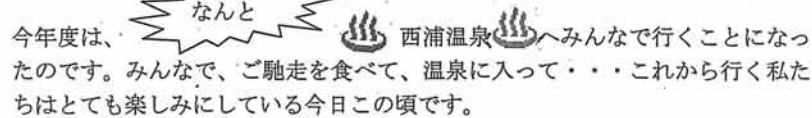 なんと
今年度は、♨西浦温泉♨へみんなで行くことになっ
たのです。みんなで、ご馳走を食べて、温泉に入って・・・これから行く私た
ちはとても楽しみにしている今日この頃です。